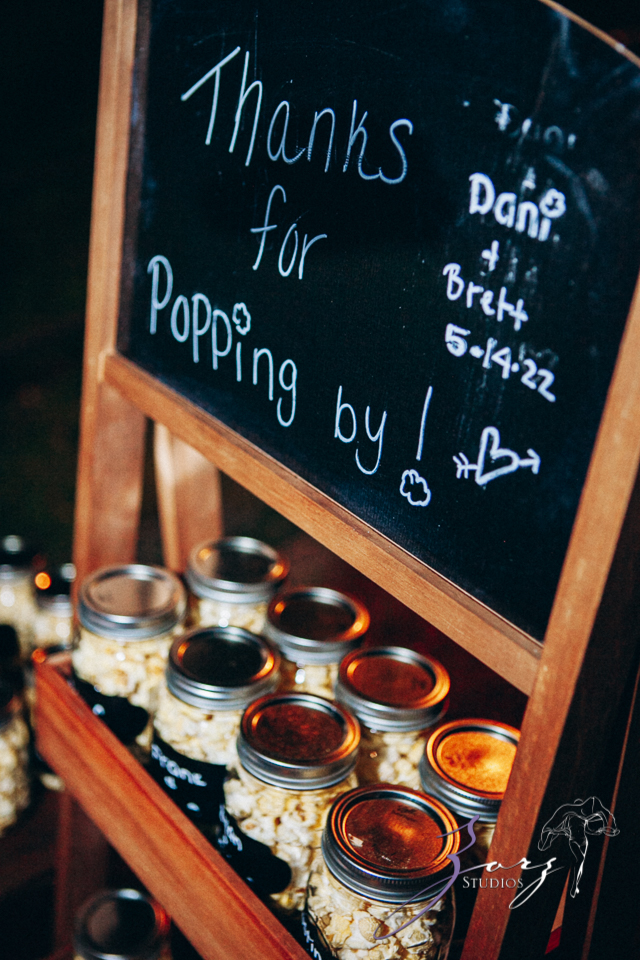 Thanks
for
Popping by!
Dani
+
Brett
5-14-22
Zorz
STUDIOS